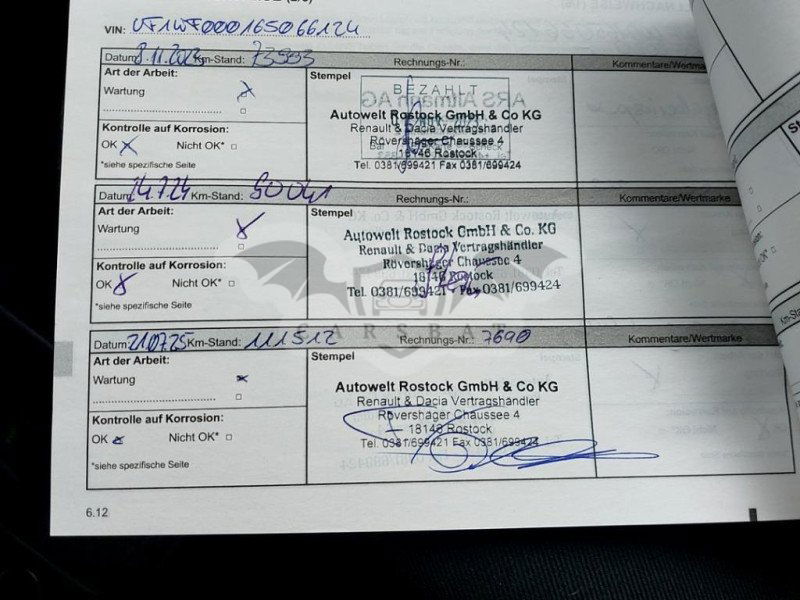 VIN: VF1WF000165066124
Datum 8.11.2023 Km-Stand: 73593 Rechnungs-Nr.: Kommentare/Wertmarke
Art der Arbeit: Stempel
Wartung x
BEZAHLT
Autowelt Rostock GmbH & Co KG
Renault & Dacia Vertragshändler
Kontrolle auf Korrosion:
Rövershäger Chaussee 4
OK x Nicht OK*
18146 Rostock
*siehe spezifische Seite
Tel. 0381/699421 Fax 0381/699424
Datum 24.7.24 Km-Stand: 90041 Rechnungs-Nr.: Kommentare/Wertmarke
Art der Arbeit: Stempel
Wartung x
Autowelt Rostock GmbH & Co. KG
Renault & Dacia Vertragshändler
Kontrolle auf Korrosion:
Rövershäger Chaussee 4
OK x Nicht OK*
18146 Rostock
Tel. 0381/699421 Fax 0381/699424
*siehe spezifische Seite
CARSBAT
Datum 210725 Km-Stand: 111512 Rechnungs-Nr.: 7690 Kommentare/Wertmarke
Art der Arbeit: Stempel
Wartung x
Autowelt Rostock GmbH & Co KG
Renault & Dacia Vertragshändler
Kontrolle auf Korrosion:
Rövershäger Chaussee 4
OK x Nicht OK*
18146 Rostock
Tel. 0381/699421 Fax 0381/699424
*siehe spezifische Seite
6.12